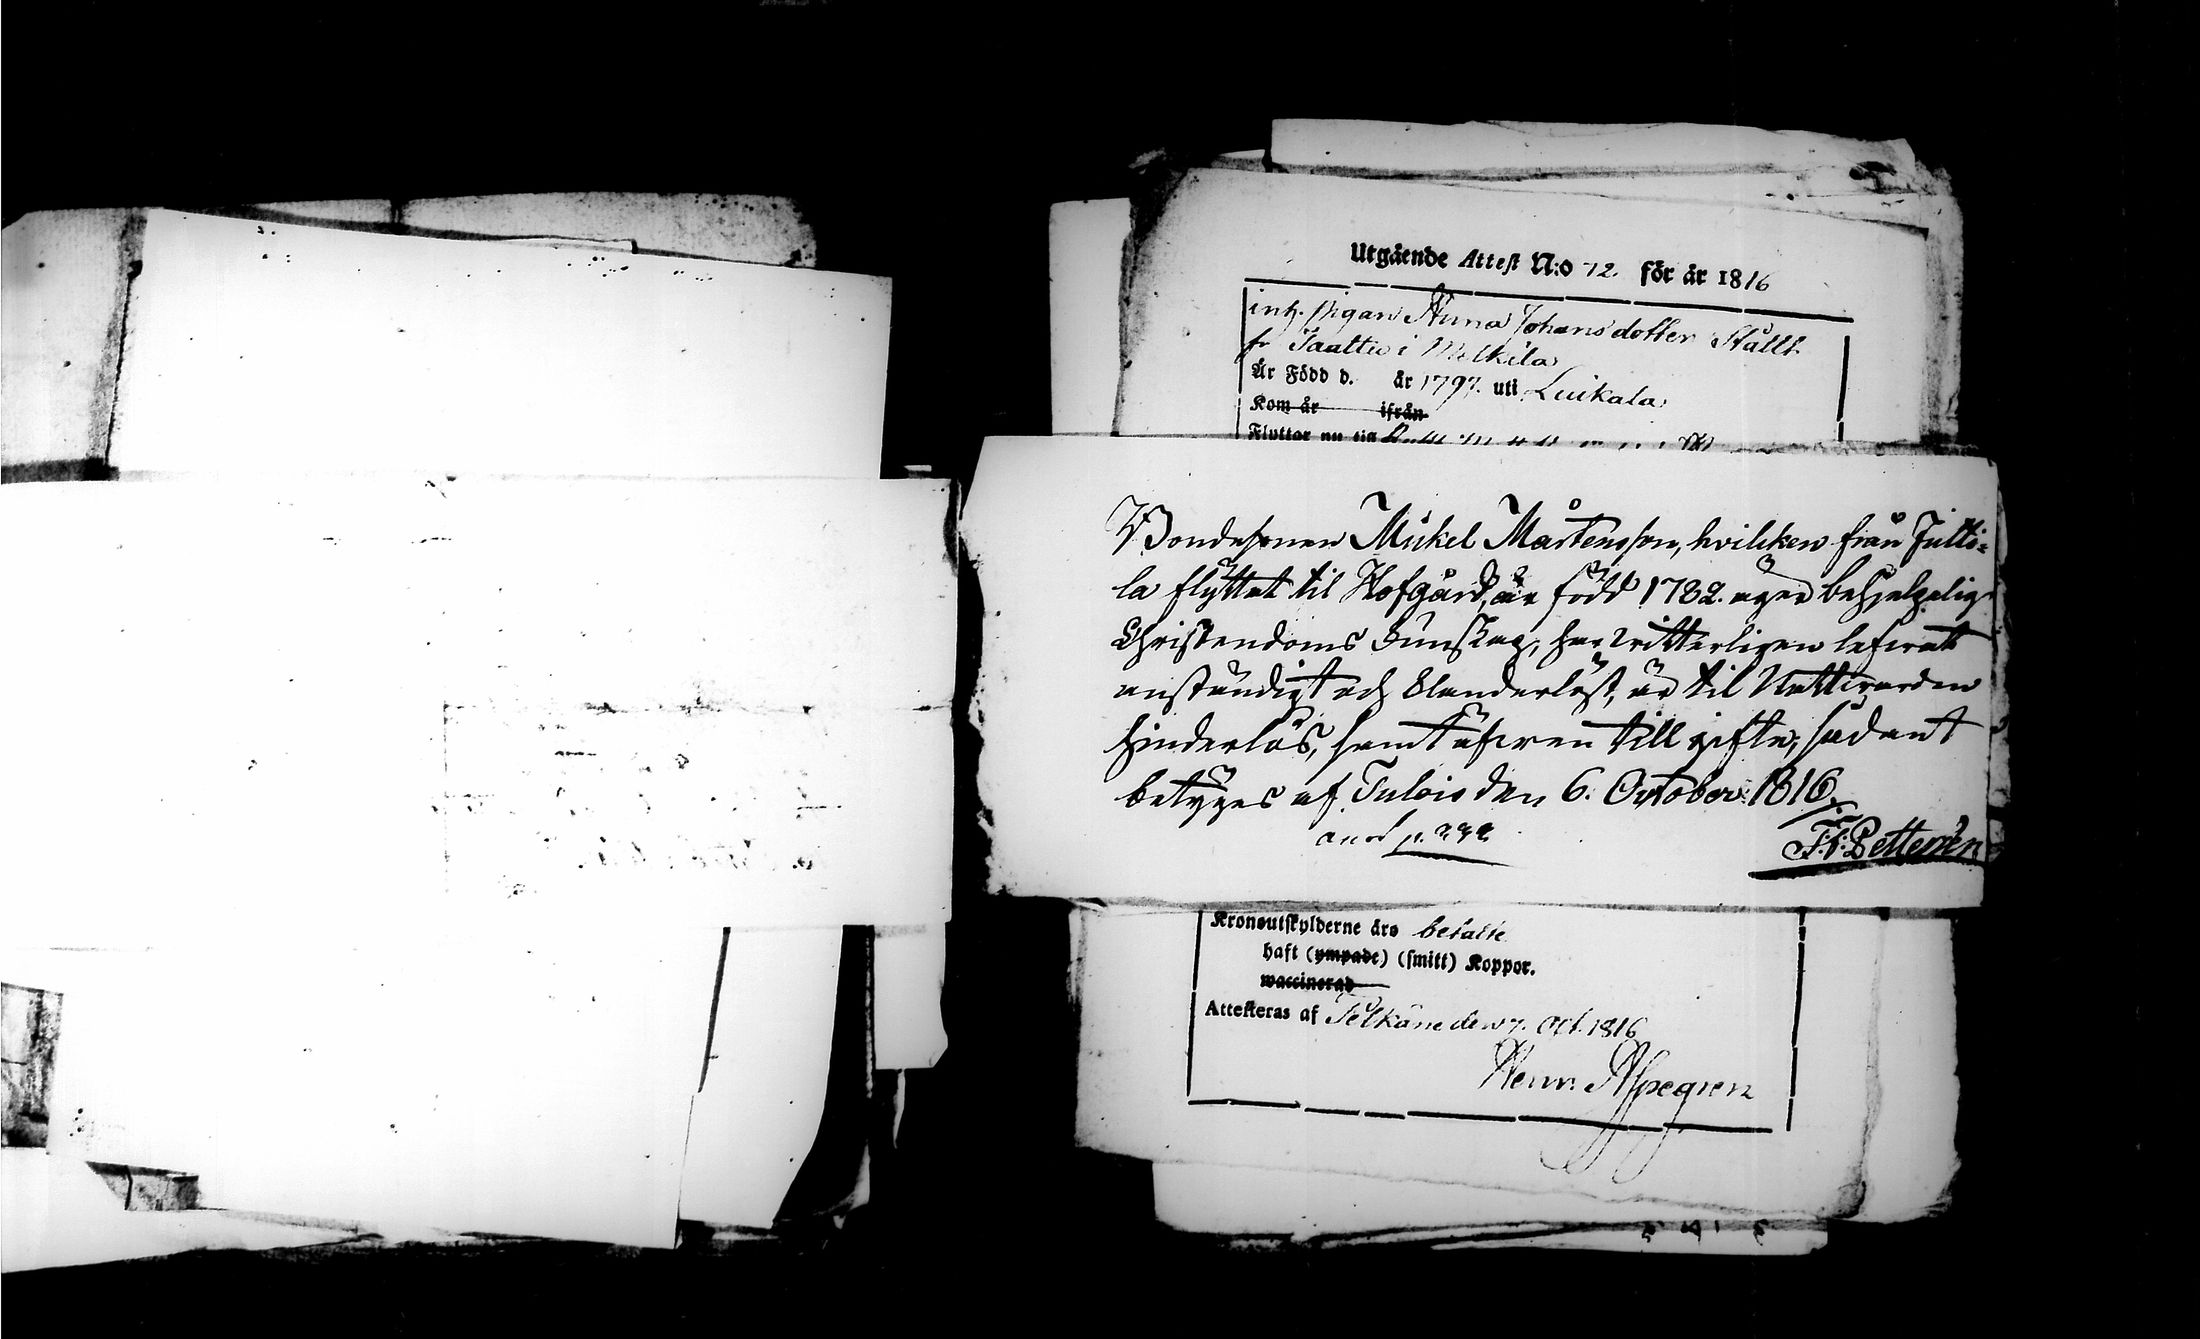 Utgående Attest N:o 72. för år 1816
inh. pigan Anna Johansdotter Stållt
fr i Melkila
Är Född d. år 1797. uti Luikala
Kom år ifrån
Flyttar nu till
Bondesonen Mickel Mårtensson, hvilcken från Jutti=
la flyttat til Hofgård, är född 1782. äger behjelpelig
Christendoms Kunskap, har witterligen lefwat
anständigt och Klanderlöst, är til Nattwarden
hinderlös, samt äfwen till gifte, sådant
betyges af Tulois den 6. October 1816.
F. Pettersén
Kronoutskylderne äro betalte
haft (ympade) (smitt) Koppor.
waccinerad
Attesteras af Pelkäne den 7. Oct. 1816
Henr. Aspegren